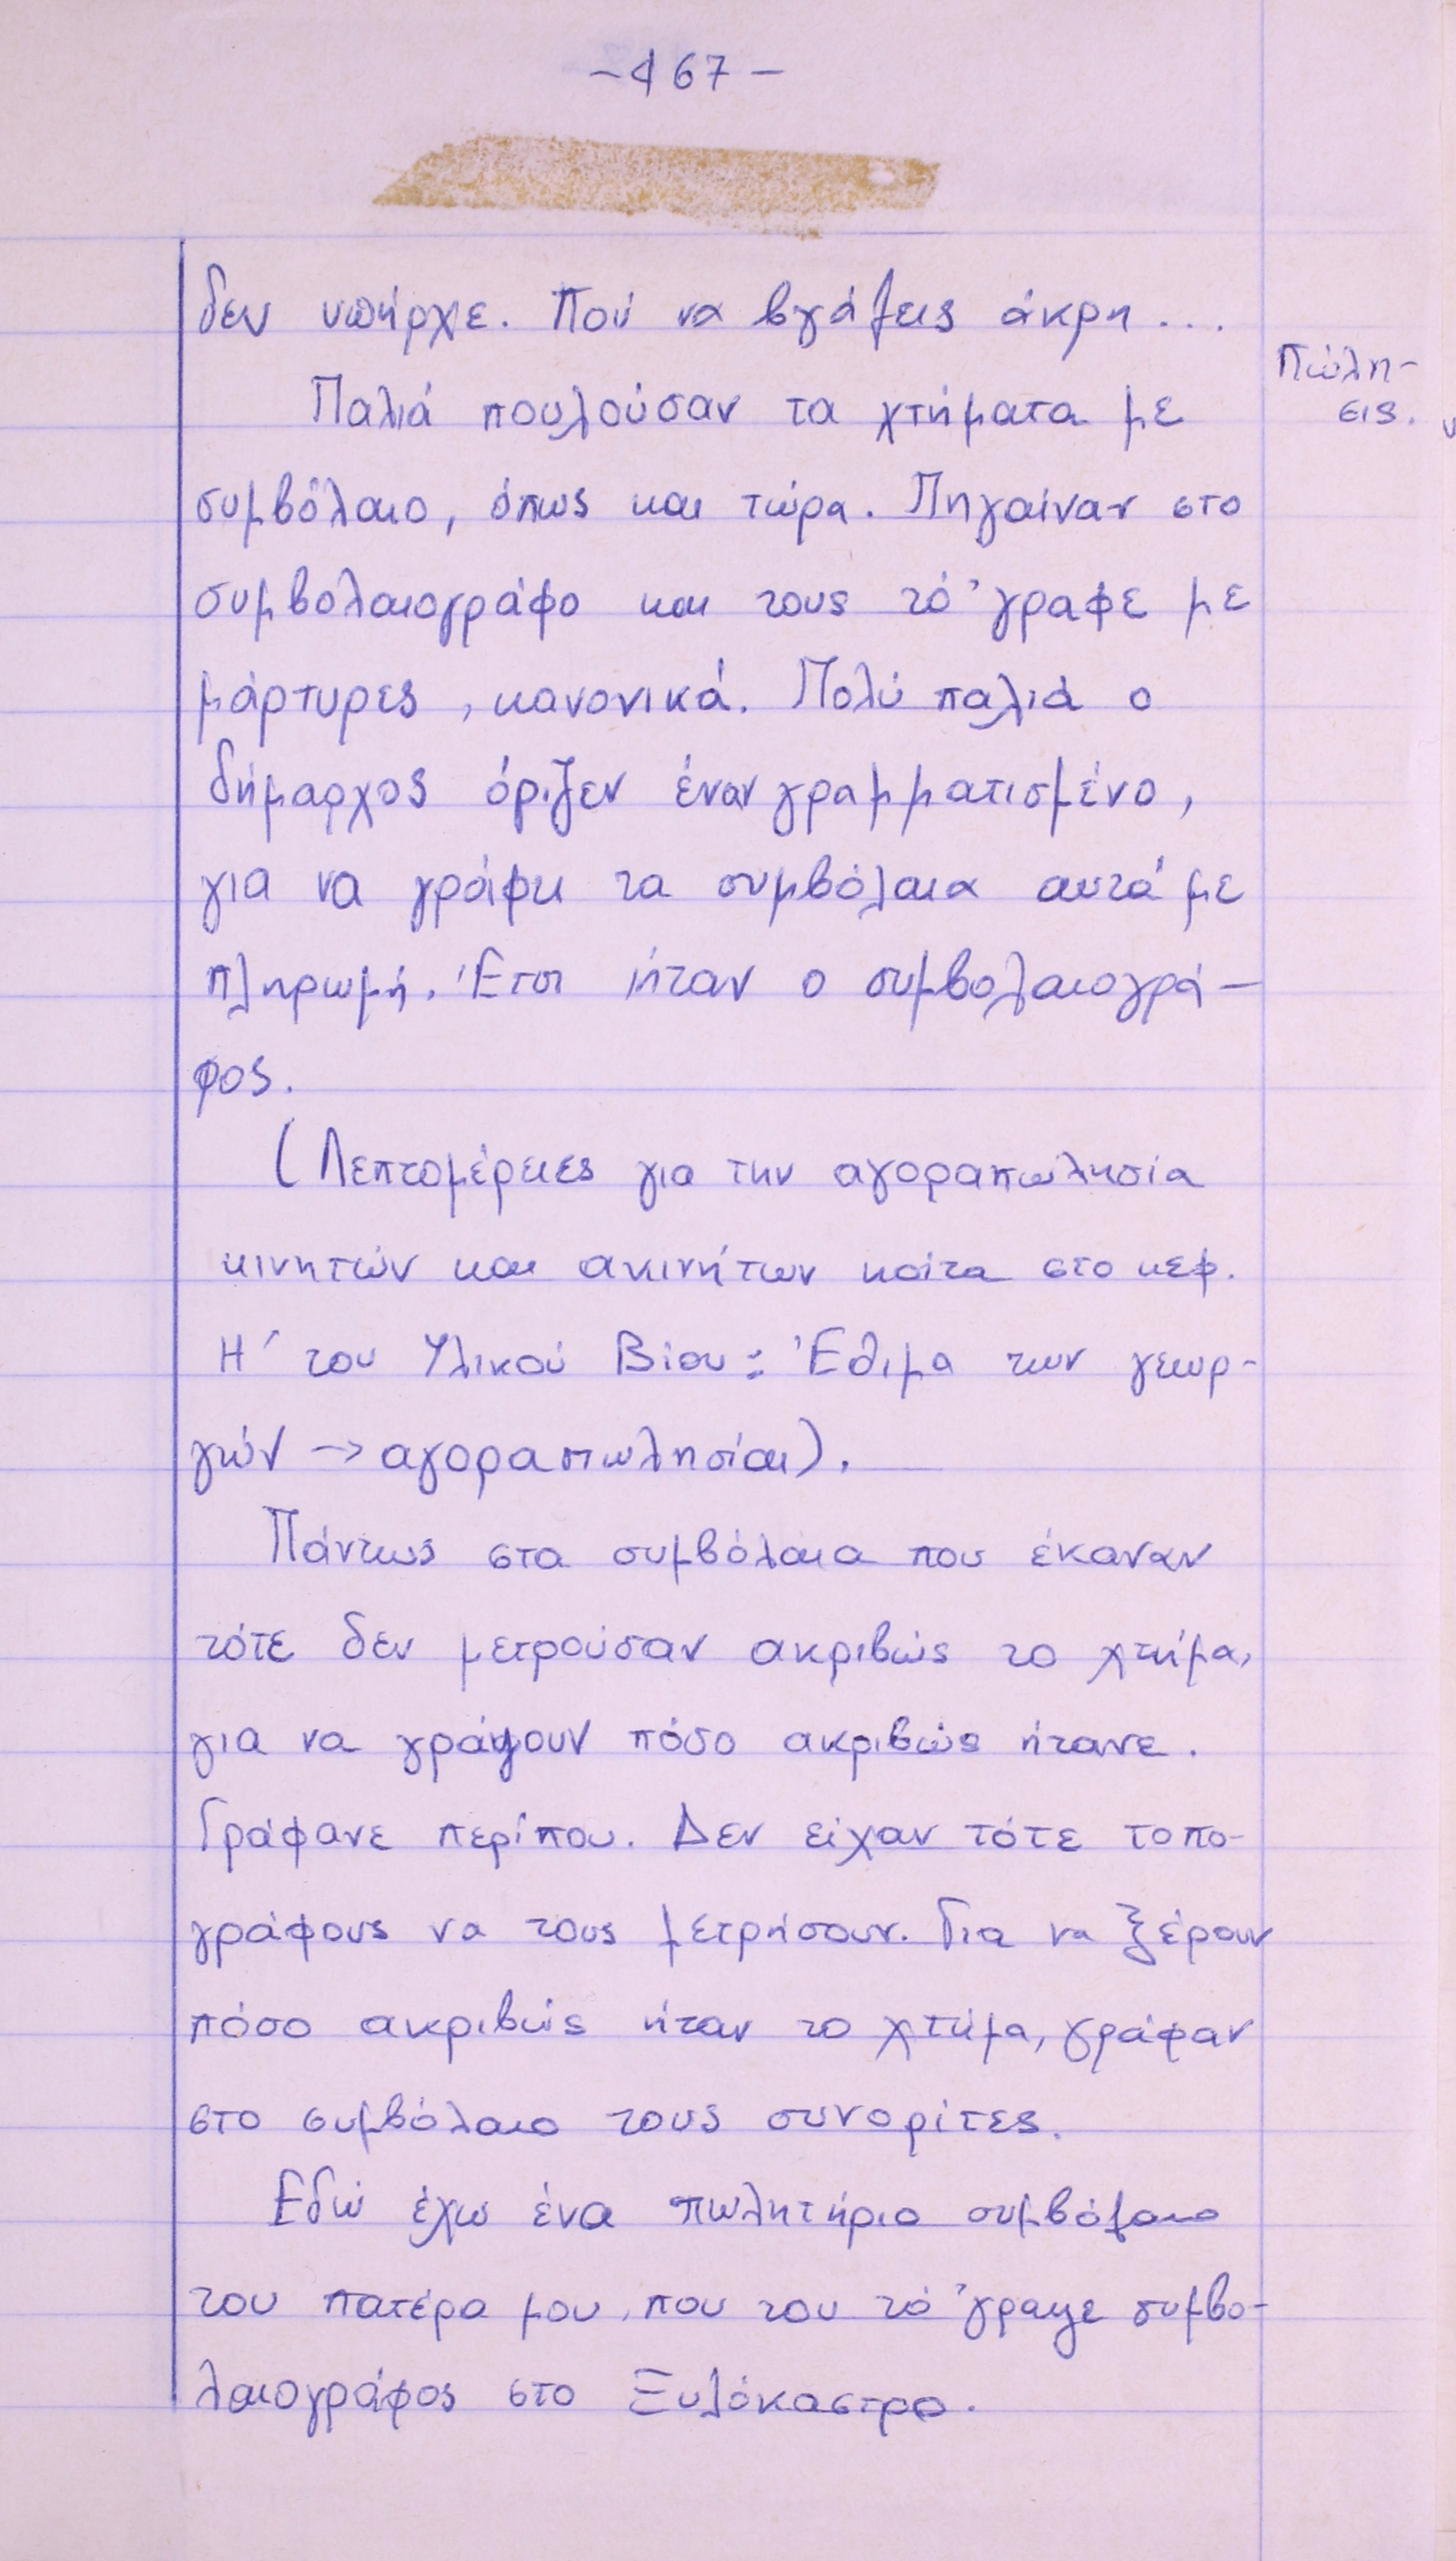 -467-
δεν υπήρχε. Πού να βγάζεις άκρη...
Πώλη-
σεις.
Παλιά πουλούσαν τα χτήματα με
συμβόλαιο, όπως και τώρα. Πηγαίναν στο
συμβολαιογράφο και τους τό'γραφε με
μάρτυρες, κανονικά. Πολύ παλιά ο
δήμαρχος όριζεν έναν γραμματισμένο,
για να γράφει τα συμβόλαια αυτά με
πληρωμή. Έτσι ήταν ο συμβολαιογρά-
φος.
(Λεπτομέρειες για την αγοραπωλησία
κινητών και ακινήτων κοίτα στο κεφ.
Η΄ του Υλικού Βίου: Έθιμα των γεωρ-
γών → αγοραπωλησίαι).
Πάντως στα συμβόλαια που έκαναν
τότε δεν μετρούσαν ακριβώς το χτήμα,
για να γράψουν πόσο ακριβώς ήτανε.
Γράφανε περίπου. Δεν είχαν τότε τοπο-
γράφους να τους μετρήσουν. Για να ξέρουν
πόσο ακριβώς ήταν το χτήμα, γράφαν
στο συμβόλαιο τους συνορίτες.
Εδώ έχω ένα πωλητήριο συμβόλαιο
του πατέρα μου, που του τό'γραψε συμβο-
λαιογράφος στο Ξυλόκαστρο.